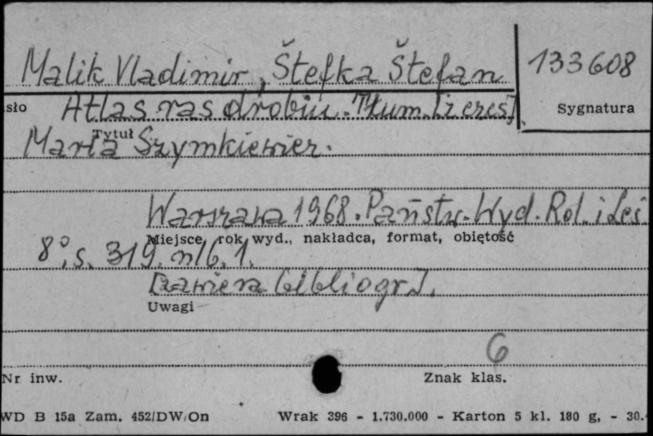 Malik Vladimir, Štefka Štefan
133608
sło
Atlas ras drobiu. Tłum. [z czes.]
Sygnatura
Tytuł
Marta Szymkiewicz.
Warszawa 1968. Państw. Wyd. Rol. i Leś.
Miejsce, rok wyd., nakładca, format, objętość
8°, s. 319. nlb. 1.
[zawiera bibliogr.].
Uwagi
6
Nr inw.
Znak klas.
WD B 15a Zam. 452/DW/On
Wrak 396 - 1.730.000 - Karton 5 kl. 180 g, - 30.